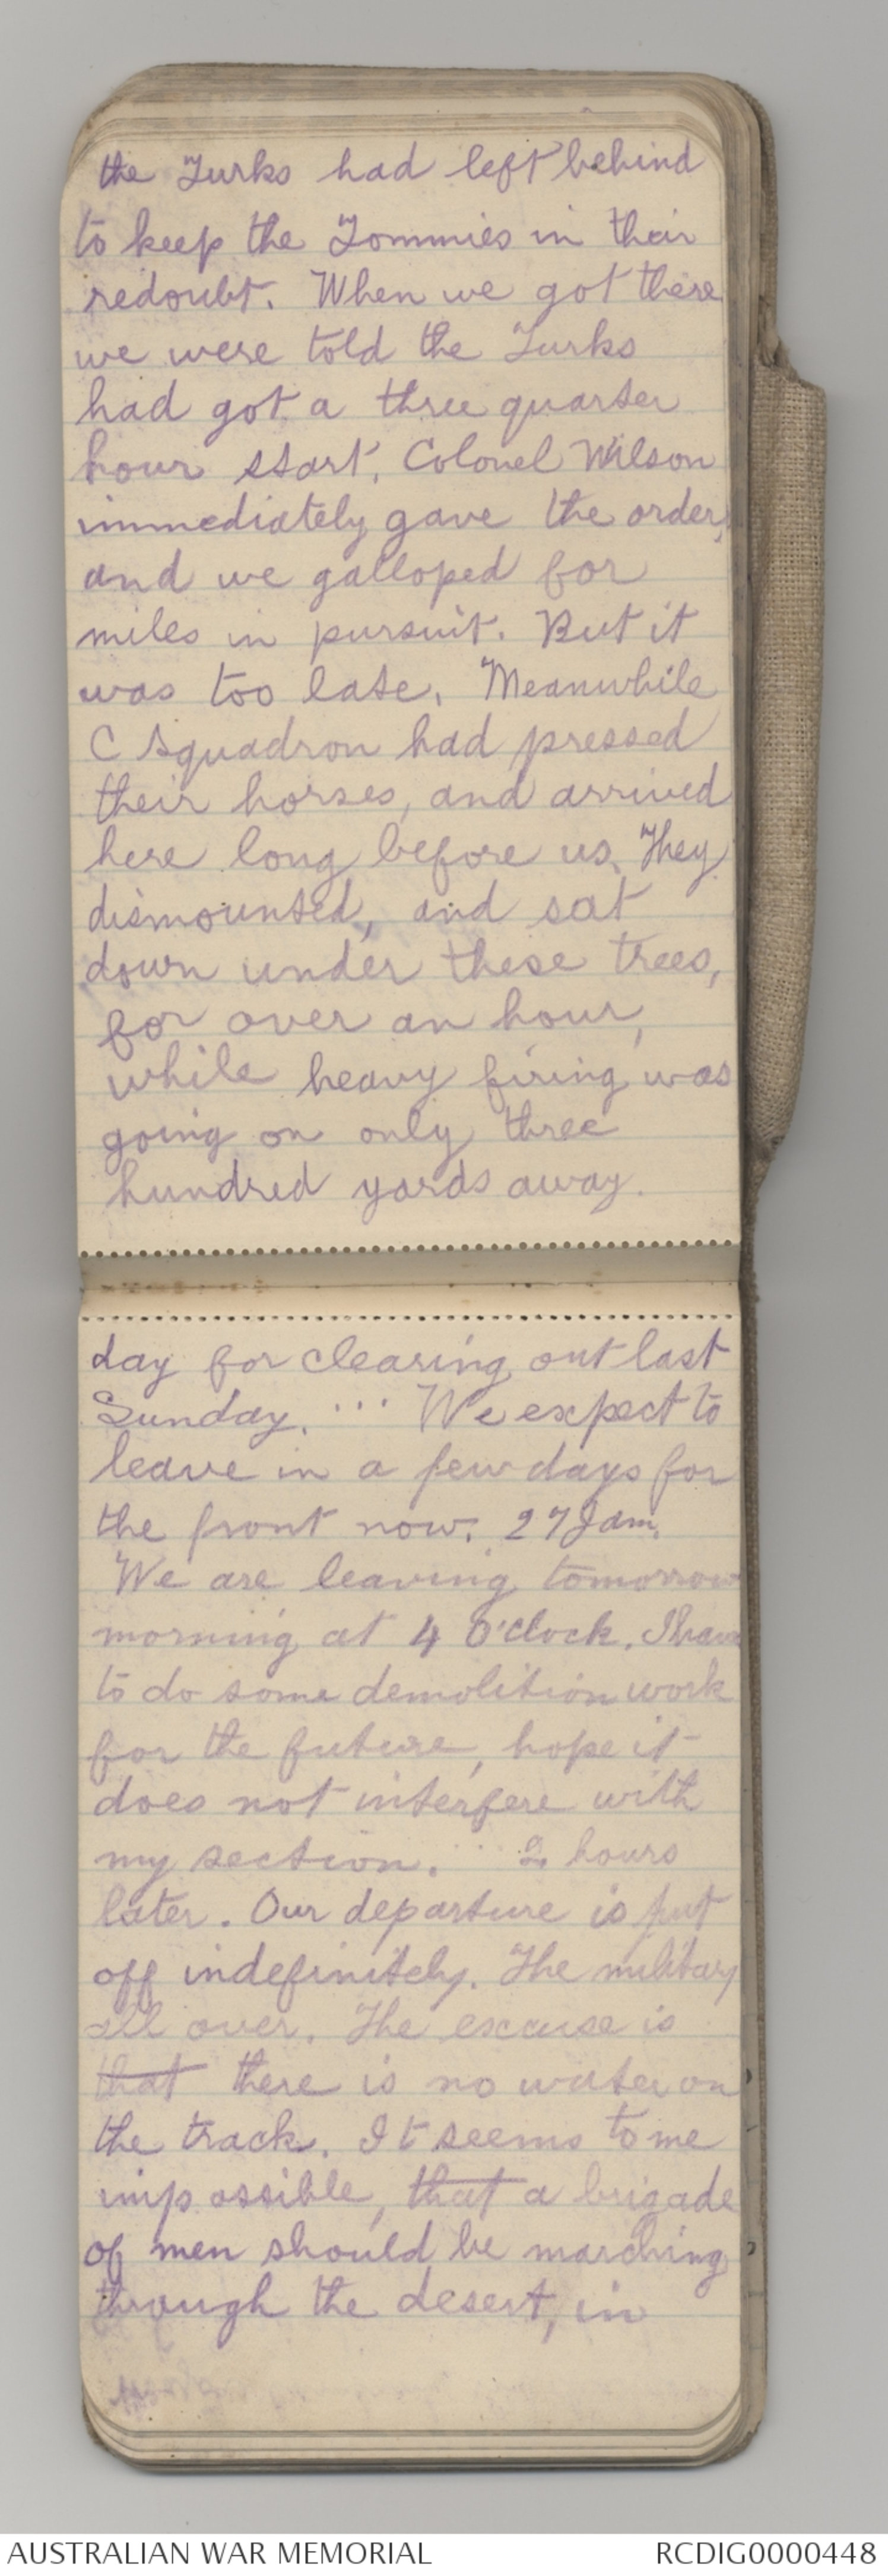 the Turks had left behind
to keep the Tommies in their
redoubt. When we got there
we were told the Turks
had got a three quarter
hour start, Colonel Wilson
immediately gave the order,
and we galloped for
miles in pursuit. But it
was too late. Meanwhile
C Squadron had pressed
their horses, and arrived
here long before us. They
dismounted, and sat
down under these trees,
for over an hour,
while heavy firing was
going on only three
hundred yards away.
day for clearing out last
Sunday. ... We expect to
leave in a few days for
the front now. 27 Jan.
We are leaving tomorrow
morning at 4 O'clock. I have
to do some demolition work
for the future, hope it
does not interfere with
my section. .. 2 hours
later. Our departure is put
off indefinitely. The military
all over. The excuse is
that there is no water on
the track. It seems to me
impossible, that a brigade
of men should be marching
through the desert, in
AUSTRALIAN WAR MEMORIAL
RCDIG0000448